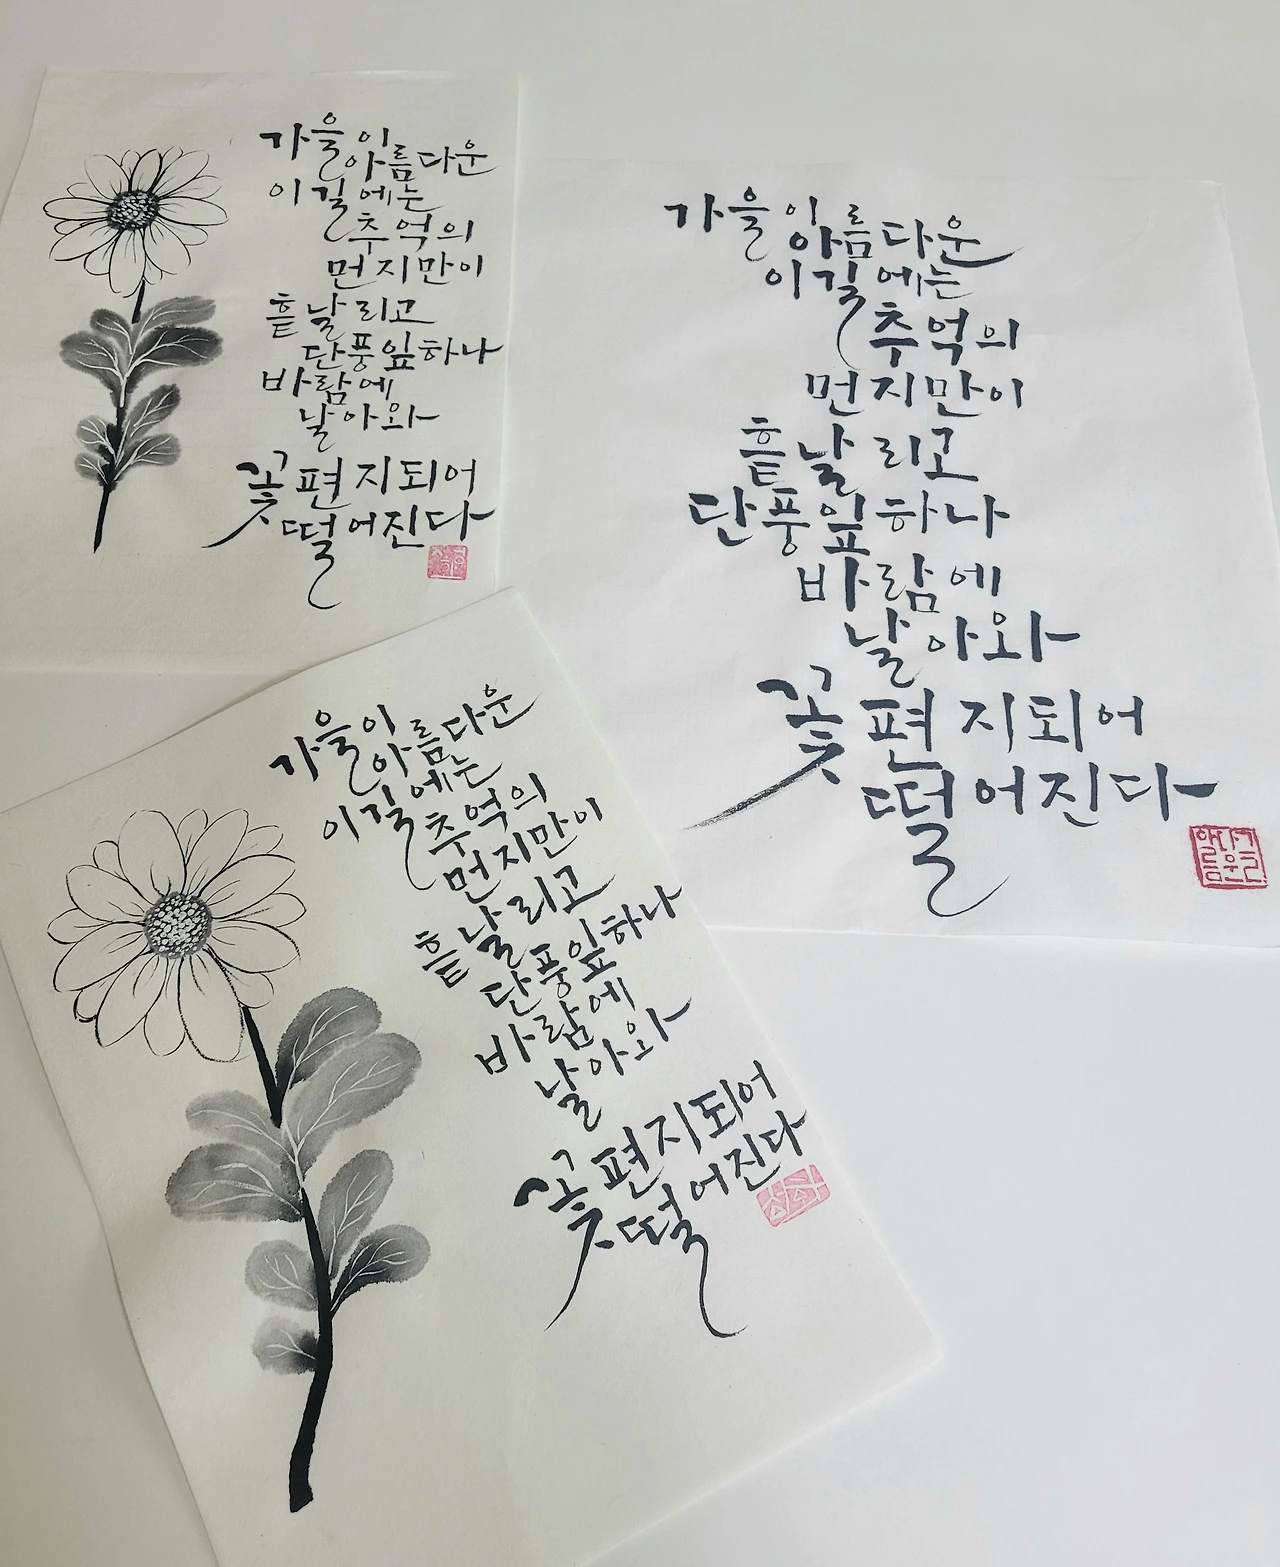 가을이
아름다운
이 길에는
추억의
먼지만이
흩날리고
단풍잎 하나
바람에
날아와
꽃편지되어
떨어진다
가을이
아름다운
이 길에는
추억의
먼지만이
흩날리고
단풍잎 하나
바람에
날아와
꽃편지되어
떨어진다
가을이
아름다운
이 길에는
추억의
먼지만이
흩날리고
단풍잎 하나
바람에
날아와
꽃편지되어
떨어진다